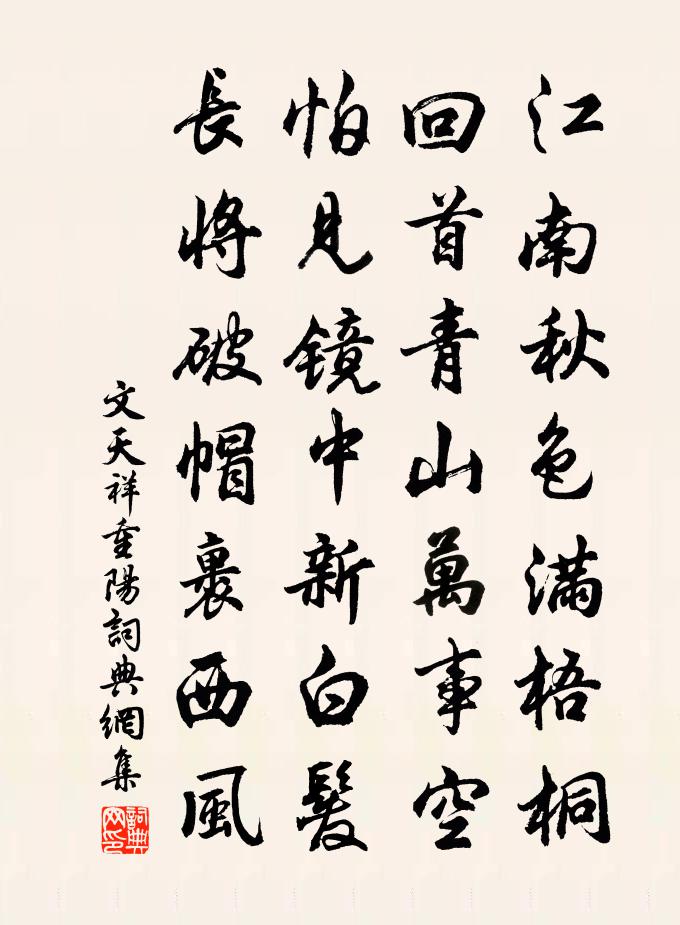 江南秋色满梧桐
回首青山萬事空
怕見镜中新白髮
長將破帽裹西風
文天祥重陽詞典網集
詞典
网印